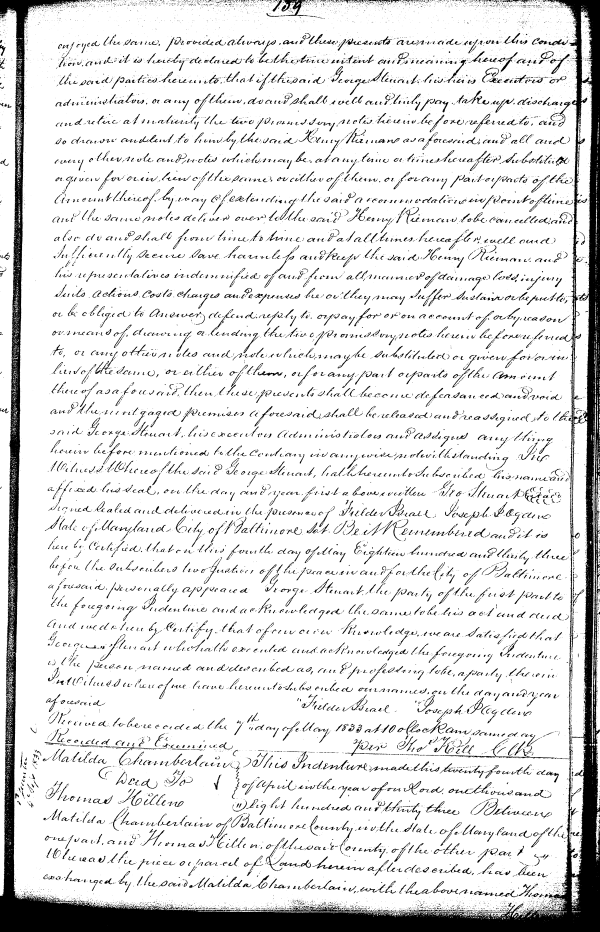 189
enjoyed the same, provided always and these presents are made upon this condi-
tion, and it is hereby declared to be the true intent and meaning hereof and of
the said parties hereunto, that if the said George Steuart, his heirs Executors or
administrators, or any of them, do and shall well and truly pay, take up, discharge
and retire at maturity the two promissory notes herein before referred to, and
so drawn and lent to him by the said Henry Rieman as aforesaid, and all and
every other note and notes which may be, at any time or times hereafter, substituted
or given for or in lieu of the same, or either of them, or for any part or parts of the
amount thereof, by way of extending the said accommodation in point of time
and the same notes deliver over to the said Henry Rieman to be cancelled, and
also do and shall from time to time and at all times hereafter, well and
sufficiently secure save harmless and keep the said Henry Rieman and
his representatives indemnified of and from all manner of damage loss, injury
suits actions costs charges and expenses he or they may suffer sustain or be put to,
or be obliged to answer, defend, reply to, or pay for or on account of or by reason
or means of, drawing or lending the two promissory notes herein before referred
to, or any other notes and note which may be substituted or given for or in
lieu of the same, or either of them, or for any part or parts of the amount
thereof as aforesaid, then these presents shall become defeasanced and void
and the mortgaged premises aforesaid shall be released and reassigned to the
said George Steuart, his executors administrators and assigns any thing
herein before mentioned to the contrary in any wise notwithstanding In
Witness Whereof the said George Steuart, hath hereunto subscribed his name and
affixed his seal, on the day and year first above written Geo Steuart Seal
signed sealed and delivered in the presence of Fielder Israel Joseph Ogden
State of Maryland City of Baltimore Sct. Be it Remembered and it is
hereby certified, that on this fourth day of May Eighteen hundred and thirty three
before the subscribers two Justices of the peace in and for the City of Baltimore
aforesaid, personally appeared George Steuart, the party of the first part to
the foregoing Indenture and acknowledged the same to be his act and deed
And we do hereby Certify, that of our own knowledge, we are satisfied that
George Steuart who hath executed and acknowledged the foregoing Indenture
is the person named and described as, and professing to be, a party therein
In Witness whereof we have hereunto subscribed our names, on the day and year
aforesaid Fielder Israel Joseph Ogden
Received to be recorded the 7th day of May 1833 at 10 oclock am same day
Recorded and Examined per Thos Kell Clk
Matilda Chamberlain This Indenture, made this twenty fourth day
Deed To of April in the year of our Lord, one thousand
Thomas Hillen Eight hundred and thirty three Between
Matilda Chamberlain of Baltimore County, in the State of Maryland of the
one part, and Thomas Hillen, of the said County, of the other part
Whereas the piece or parcel of Land herein after described, has been
exchanged by the said Matilda Chamberlain, with the above named Thomas